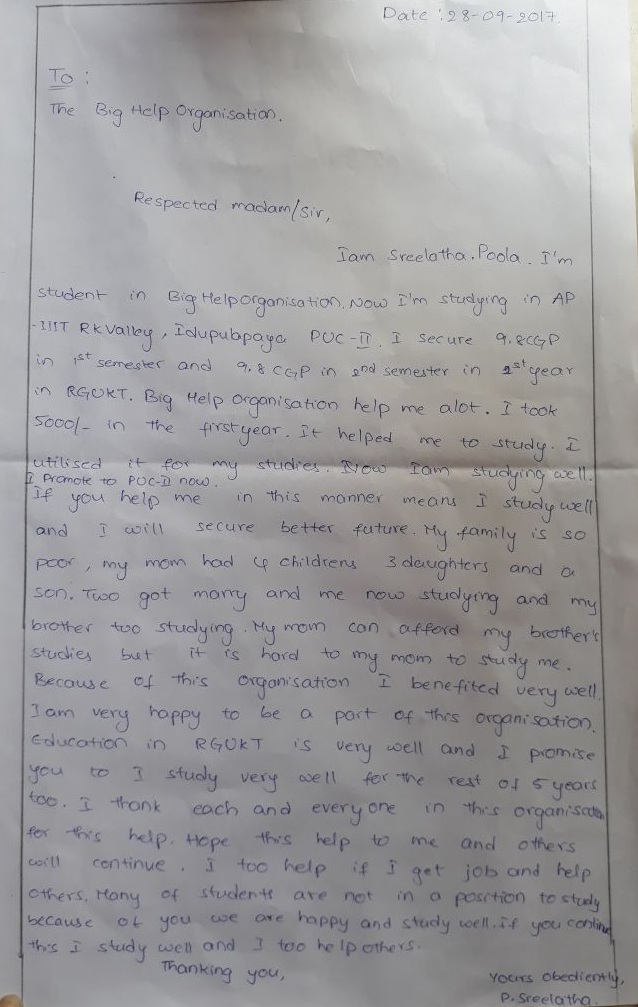 Date : 28-09-2017.
To :
The Big Help Organisation.
Respected madam/sir,
Iam Sreelatha.Poola. I'm
student in Big Helporganisation. Now I'm studying in AP
-IIIT RKValley, Idupulapaya PUC-II. I secure 9.8CGP
in 1st semester and 9.8 CGP in 2nd semester in 1st year
in RGUKT. Big Help Organisation help me alot. I took
5000/- in the firstyear. It helped me to study. I
utilised it for my studies. Now Iam studying well.
I Promote to PUC-II now.
If you help me in this manner means I study well
and I will secure better future. My family is so
poor, my mom had 4 childrens 3 daughters and a
son. Two got marry and me now studying and my
brother too studying. My mom can afford my brother's
studies but it is hard to my mom to study me.
Because of this Organisation I benefited very well.
Iam very happy to be a part of this organisation.
Education in RGUKT is very well and I promise
you to I study very well for the rest of 5 years
too. I thank each and every one in this organisation
for this help. Hope this help to me and others
will continue. I too help if I get job and help
others. Many of students are not in a position to study
because of you we are happy and study well. If you continue
this I study well and I too help others.
Thanking you,
Yours Obediently,
P. Sreelatha.